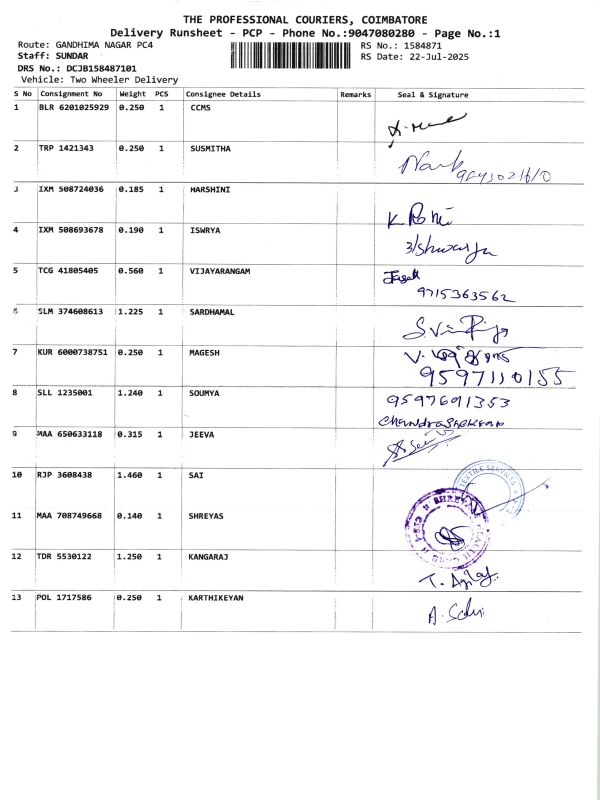 THE PROFESSIONAL COURIERS, COIMBATORE
Delivery Runsheet - PCP - Phone No.:9047080280 - Page No.:1
Route: GANDHIMA NAGAR PC4 RS No.: 1584871
Staff: SUNDAR RS Date: 22-Jul-2025
DRS No.: DCJB158487101
Vehicle: Two Wheeler Delivery
S No Consignment No Weight PCS Consignee Details Remarks Seal & Signature
1 BLR 6201025929 0.250 1 CCMS
2 TRP 1421343 0.250 1 SUSMITHA
3 IXM 508724036 0.185 1 HARSHINI
4 IXM 508693678 0.190 1 ISWRYA
5 TCG 41805405 0.560 1 VIJAYARANGAM
9715363562
6 SLM 374608613 1.225 1 SARDHAMAL
7 KUR 6000738751 0.250 1 MAGESH
9597110155
8 SLL 1235001 1.240 1 SOUMYA 9597691353
Chandrasekean
9 MAA 650633118 0.315 1 JEEVA
10 RJP 3608438 1.460 1 SAI
TEXTILE SERVICES
11 MAA 708749668 0.140 1 SHREYAS
12 TDR 5530122 1.250 1 KANGARAJ
13 POL 1717586 0.250 1 KARTHIKEYAN